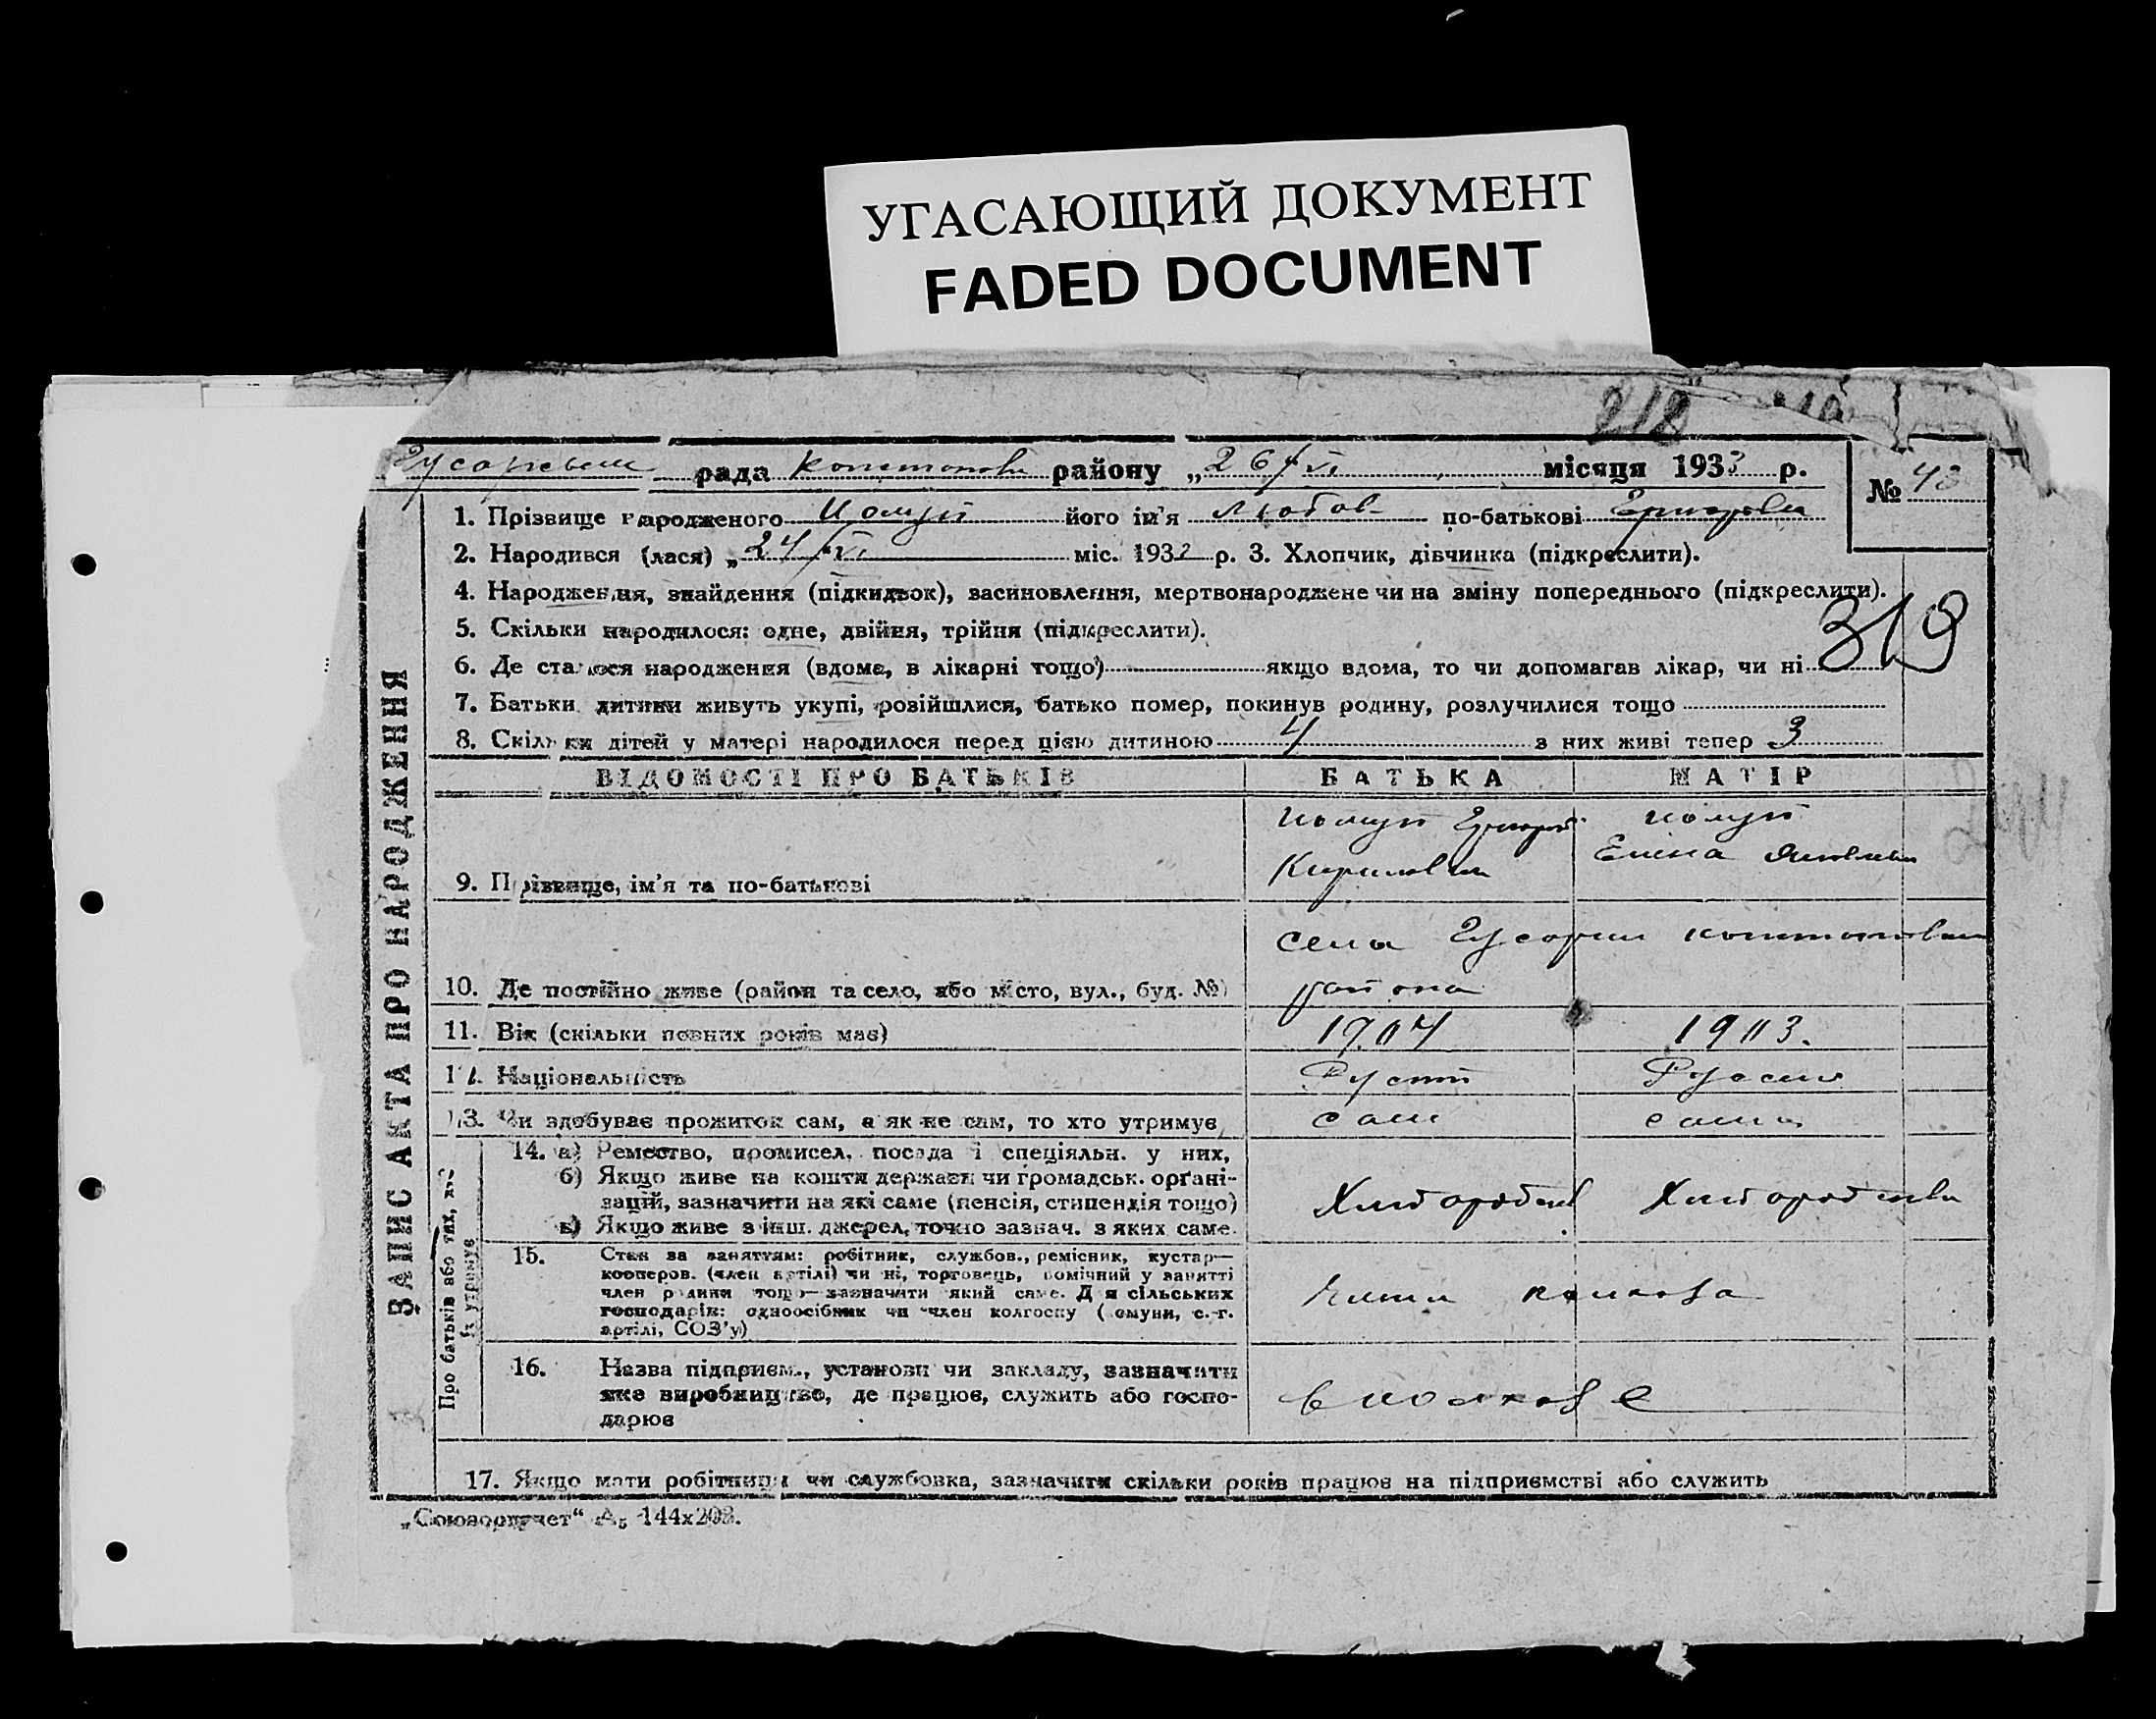 УГАСАЮЩИЙ ДОКУМЕНТ
FADED DOCUMENT
212
рада району „26/VI місяця 1933 р.
№ 43
1. Прізвище народженого його ім'я Любов по-батькові
2. Народився (лася) „24/VI міс. 1933 р. 3. Хлопчик, дівчинка (підкреслити).
4. Народження, знайдення (підкидьок), засиновлення, мертвонароджене чи на зміну попереднього (підкреслити).
5. Скільки народилося: одне, двійня, трійня (підкреслити).
319
6. Де сталося народження (вдома, в лікарні тощо) якщо вдома, то чи допомагав лікар, чи ні
7. Батьки дитини живуть укупі, розійшлися, батько помер, покинув родину, розлучилися тощо
8. Скільки дітей у матері народилося перед цією дитиною 4 з них живі тепер 3
ЗАПИС АКТА ПРО НАРОДЖЕННЯ
ВІДОМОСТІ ПРО БАТЬКІВ БАТЬКА МАТІР
Кирилович Елена
9. Прізвище, ім'я та по-батькові
села
10. Де постійно живе (район та село, або місто, вул., буд. №) района
11. Вік (скільки повних років має) 1904 1903.
12. Національність
13. Чи здобуває прожиток сам, а як не сам, то хто утримує сам сама
Про батьків або тих, хто їх утримує
14. а) Ремество, промисел, посада і спеціяльн. у них,
б) Якщо живе на кошти держави чи громадськ. орґані-
зацій, зазначити на які саме (пенсія, стипендія тощо)
в) Якщо живе з інш. джерел, точно зазнач. з яких саме.
Хлибороб
15. Стан за заняттям: робітник, службов., ремісник, кустар—
кооперов. (член артілі) чи ні, торговець, помічний у занятті
член родини тощо—зазначити який саме. Для сільських
господарів: одноосібник чи член колгоспу (комуни, с.-г.
артілі, СОЗ'у)
16. Назва підприєм., установи чи закладу, зазначити
яке виробництво, де працює, служить або госпо-
дарює
в колхозе
17. Якщо мати робітниця чи службовка, зазначити скільки років працює на підприємстві або служить
„Союзоргучет“ А5 144х203.